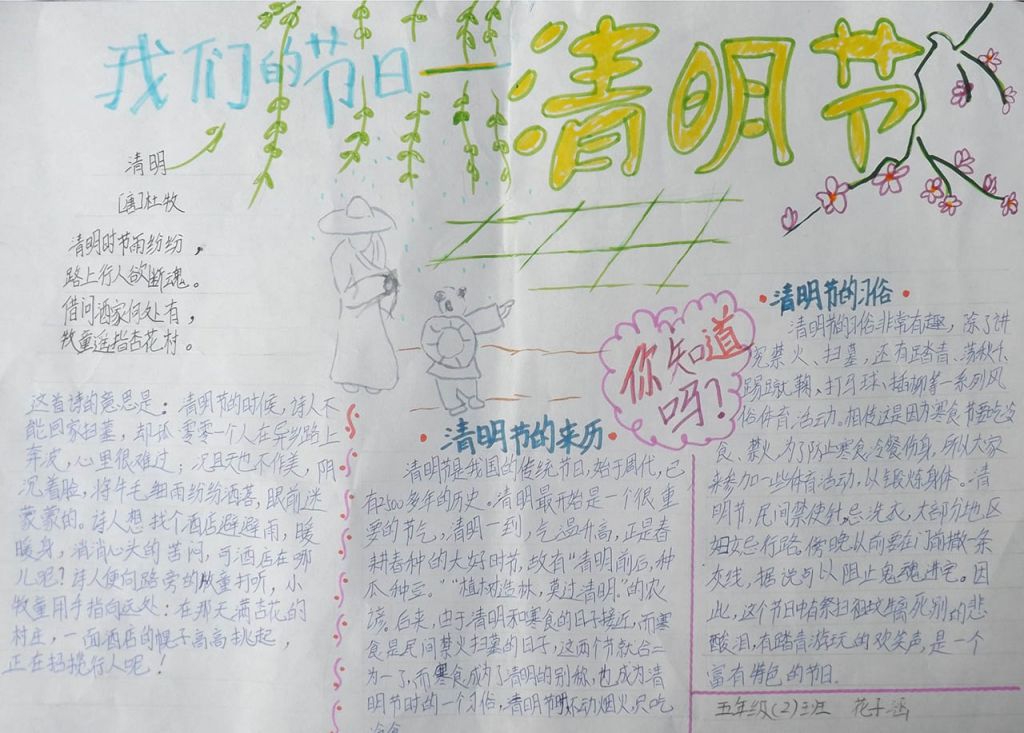 我们的节日——清明节
清明
[唐]杜牧
清明时节雨纷纷，
路上行人欲断魂。
借问酒家何处有，
牧童遥指杏花村。
这首诗的意思是：清明节的时候，诗人不
能回家扫墓，却孤零零一个人在异乡路上
奔波，心里很难过；况且天也不作美，阴
沉着脸，将牛毛细雨纷纷洒落，眼前迷
蒙蒙的。诗人想找个酒店避避雨，暖
暖身，消消心头的苦闷，可酒店在哪
儿呢？诗人便向路旁的牧童打听，小
牧童用手指向远处：在那天满杏花的
村庄，一面酒店的幌子高高挑起，
正在招揽行人呢！
清明节的来历
清明节是我国的传统节日，始于周代，已
有2500多年的历史。清明最开始是一个很重
要的节气，清明一到，气温升高，正是春
耕春种的大好时节，故有“清明前后，种
瓜种豆。”“植树造林，莫过清明”的农
谚。后来，由于清明和寒食的日子接近，而寒
食是民间禁火扫墓的日子，这两个节就合二
为一了，而寒食成为了清明的别称，也成为清
明节时的一个习俗，清明节时不动烟火，只吃
冷食
你知道
吗？！
清明节的习俗
清明节的习俗非常有趣，除了讲
究禁火、扫墓，还有踏青、荡秋千、
踢蹴鞠、打马球、插柳等一系列风
俗体育活动。相传这是因为寒食节要吃冷
食、禁火，为了防止寒食冷餐伤身，所以大家
来参加一些体育活动，以锻炼身体。清
明节，民间禁使针，忌洗衣，大部分地区
妇女忌行路。傍晚以前要在门前撒一条
灰线，据说可以阻止鬼魂进宅。因
此，这个节日中有祭扫祖坟生离死别的悲
酸泪，有踏青游玩的欢笑声，是一个
富有特色的节日.
五年级（2）班 花子涵